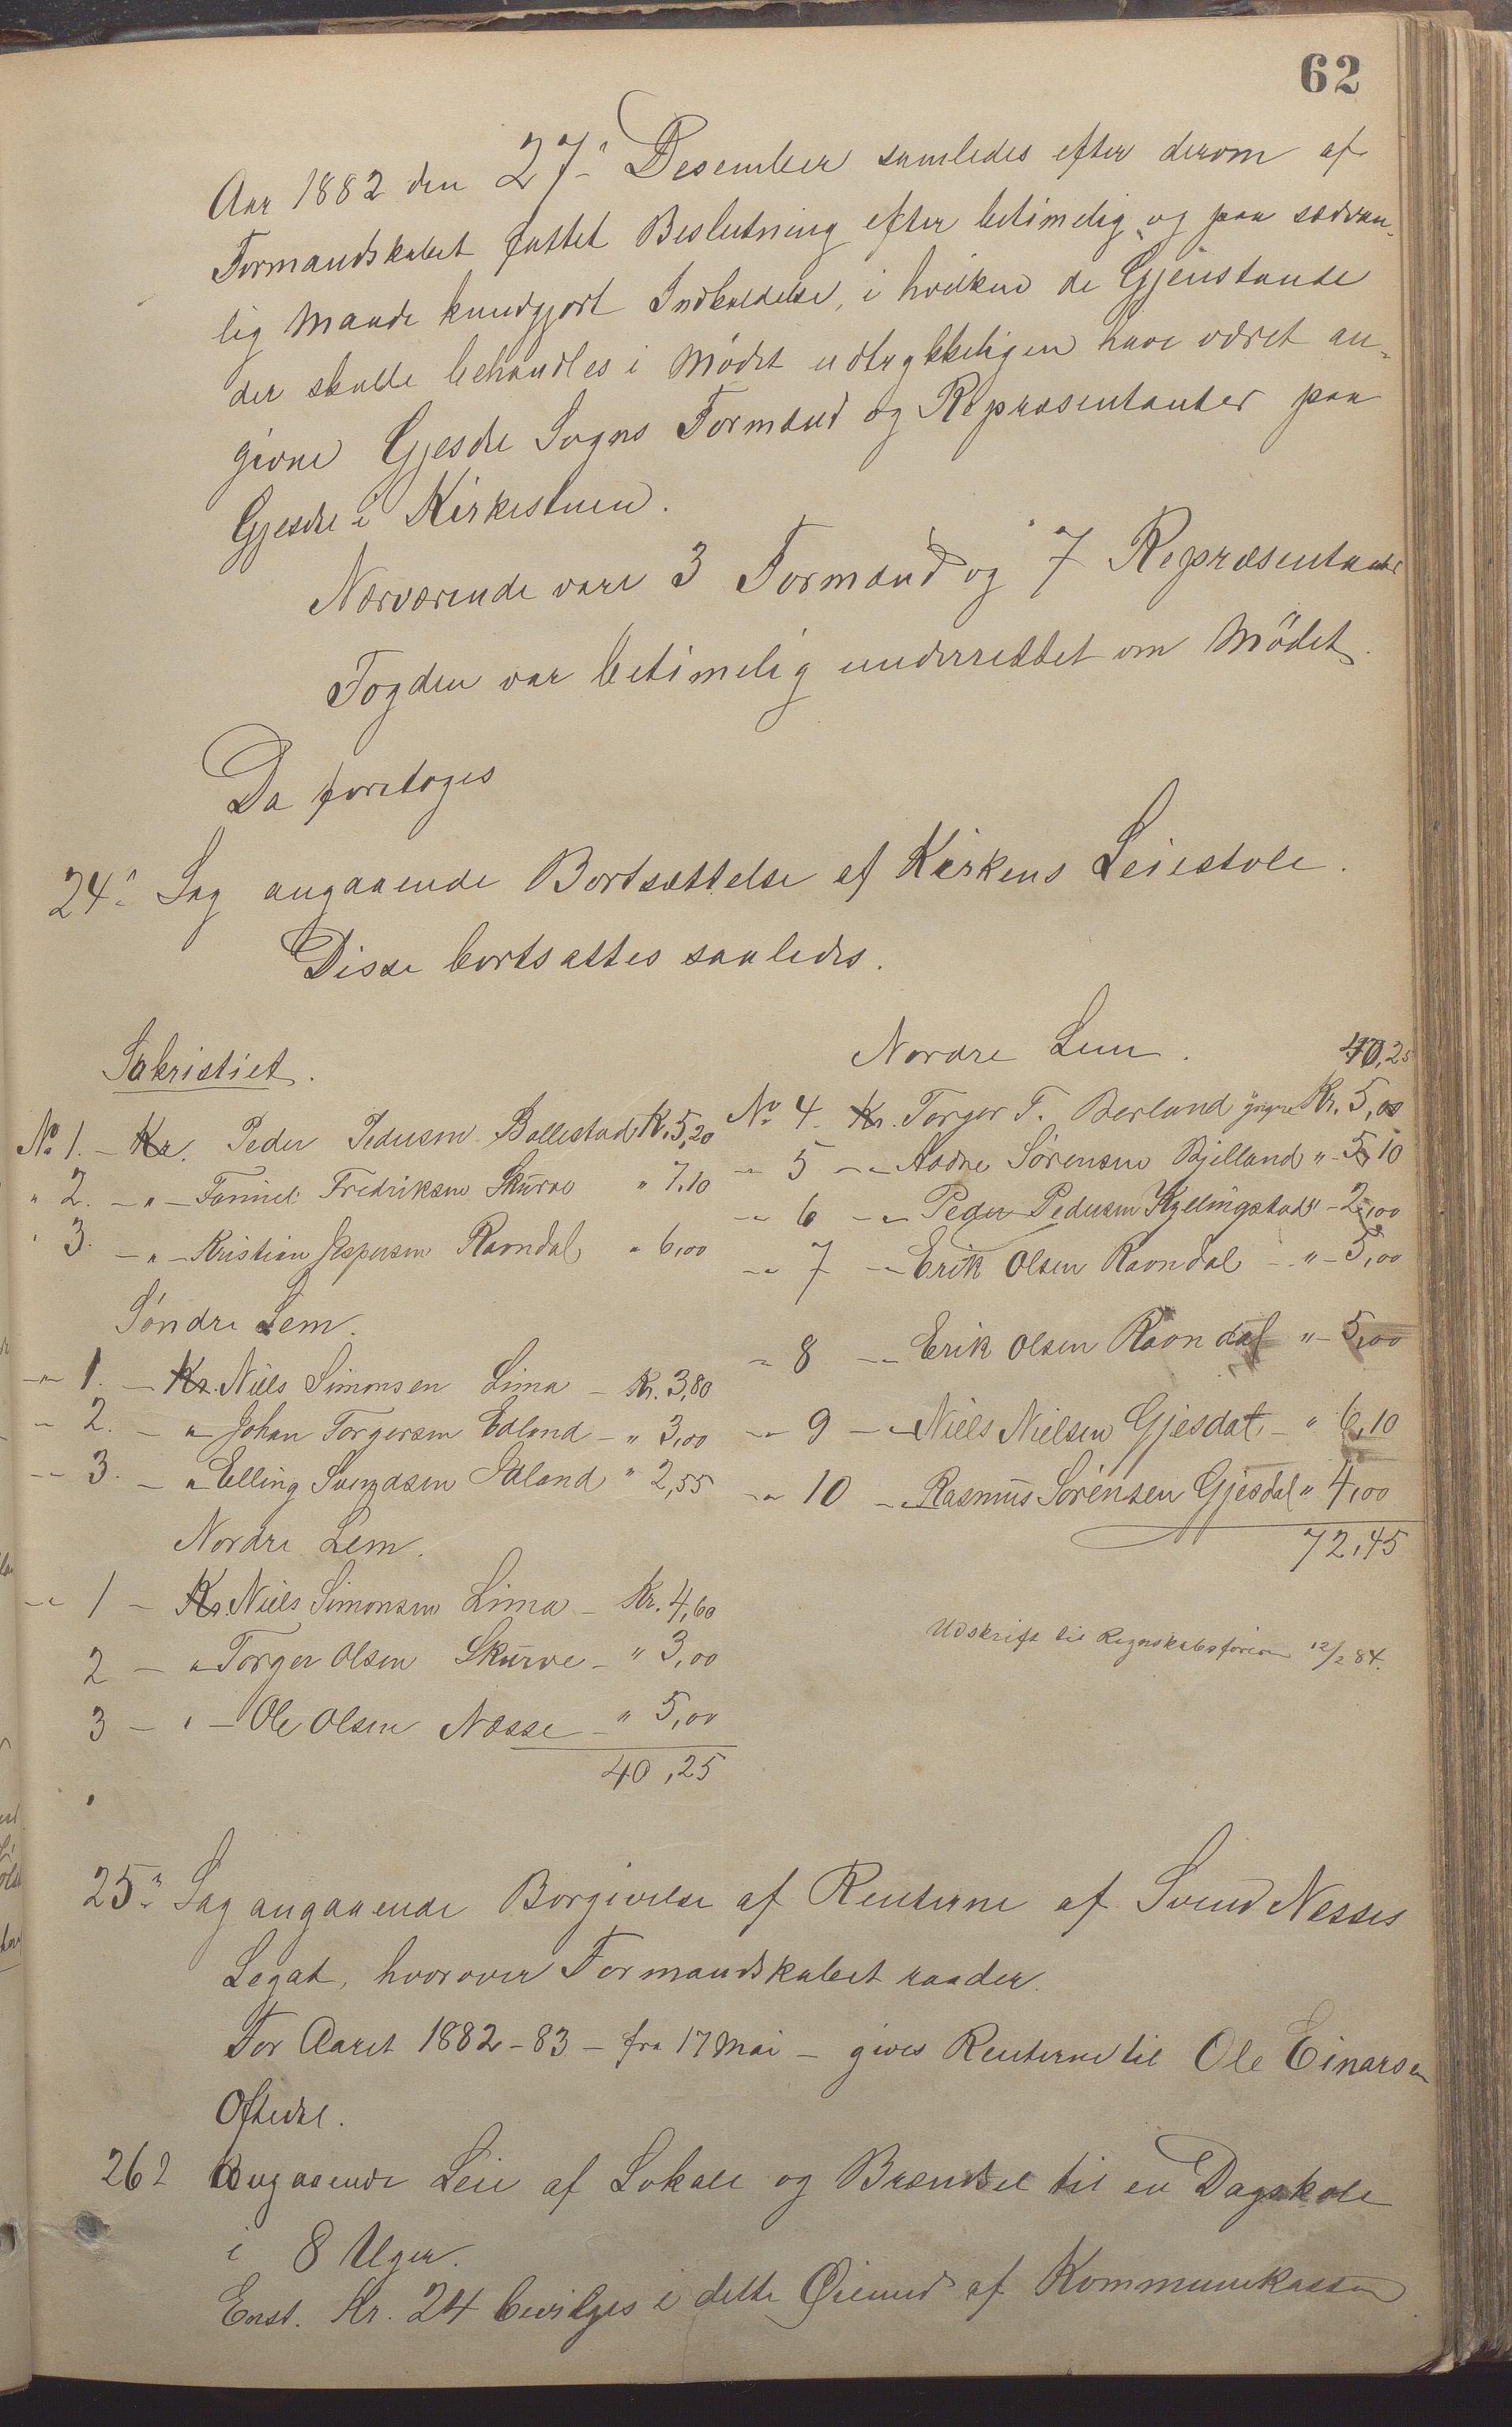 62
Aar 1882 den 27de Desember samledes efter derom af
Formandskabet fattet Beslutning efter betimelig og paa sædvan-
lig Maade kundgjort Indkaldelse, i hvilken de Gjenstande
der skulle behandles i Mødet udtrykkeligen have været an-
givne Gjesdal Sogns Formænd og Repræsentanter paa
Gjesdal i Kirkestuen.
Nærværende vare 3 Formænd og 7 Repræsentanter
Fogden var betimelig underrettet om Mødet.
Da foretoges
24de Sag angaaende Bortsættelse af Kirkens Leiestole.
Disse bortsattes saaledes.
Sakristiet.
No 1. – Kr. Peder Pedersen Bollestad Kr. 5,20
" 2. – " – Tønnes Fredriksen Skurve " 7,10
" 3. – " – Kristian Jespersen Ravndal " 6,00
Söndre Lem.
– " – 1. – Kr. Niels Simonsen Lima – Kr. 3,80
– " 2. – " Johan Torgersen Edland – " 3,00
– " 3. – " Elling Svendsen Idland " 2,55
Nordre Lem.
– " 1 – Kr. Niels Simonsen Lima – Kr. 4,60
2 – " Torger Olsen Skurve – " 3,00
3 – " – Ole Olsen Næsse – " 5,00
40,25
Nordre Lem. 40,25
No 4. Kr. Torger T. Berland yngre Kr. 5,00
– " 5 – " Aadne Sørensen Bjelland " – 5,10
– " 6 – " Peder Pedersen Kyllingstad " – 2,00
– " 7 – " Erik Olsen Ravndal – " – 5,00
– " 8 – " Erik Olsen Ravndal " – 5,00
– " 9 – " Niels Nielsen Gjesdal – " 6,10
– " 10 – " Rasmus Sørensen Gjesdal " 4,00
72,45
Udskrift til Regnskabsføreren 12/2 84.
25de Sag angaaende Borgivelse af Renterne af Svend Nesses
Legat, hvorover Formandskabet raader.
For Aaret 1882-83 – fra 17 Mai – gives Renterne til Ole Einarsen
Oftedal.
26de Angaaende Leie af Lokale og Brændsel til en Dagskole
i 8 Uger.
Enst. Kr. 24 bevilges i dette Øiemed af Kommunekassen